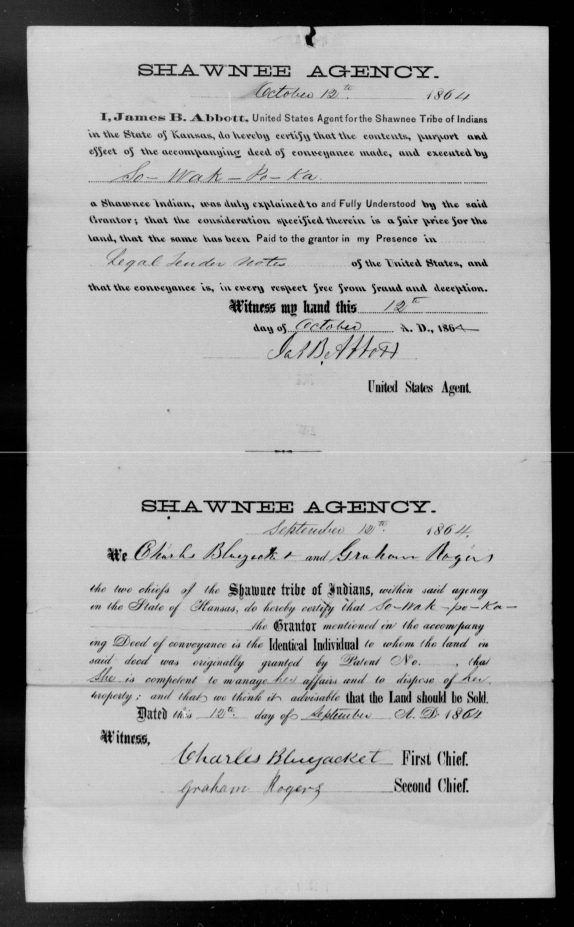 SHAWNEE AGENCY.
October 12th. 1864
I, James B. Abbott, United States Agent for the Shawnee Tribe of Indians
in the State of Kansas, do hereby certify that the contents, purport and
effect of the accompanying deed of conveyance made, and executed by
So-Wak-Po-Ka
a Shawnee Indian, was duly explained to and Fully Understood by the said
Grantor; that the consideration specified therein is a fair price for the
land, that the same has been Paid to the grantor in my Presence in
Legal Tender Notes of the United States, and
that the conveyance is, in every respect free from fraud and deception.
Witness my hand this 12th
day of October A. D., 1864
Jas B. Abbott
United States Agent.
SHAWNEE AGENCY.
September 12th. 1864.
We Charles Bluejacket and Graham Rogers
the two chiefs of the Shawnee tribe of Indians, within said agency
in the State of Kansas, do hereby certify that So-wak-po-ka-
the Grantor mentioned in the accompany
ing Deed of conveyance is the Identical Individual to whom the land in
said deed was originally granted by Patent No. , that
She is competent to manage her affairs and to dispose of her
property; and that we think it advisable that the Land should be Sold.
Dated this 12th. day of September A. D. 1864
Witness,
Charles Bluejacket First Chief.
Graham Rogers Second Chief.